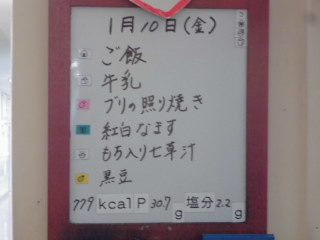 1月10日(金)
ご飯
牛乳
ブリの照り焼き
紅白なます
もち入り七草汁
黒豆
779kcalP30.7g塩分2.2g